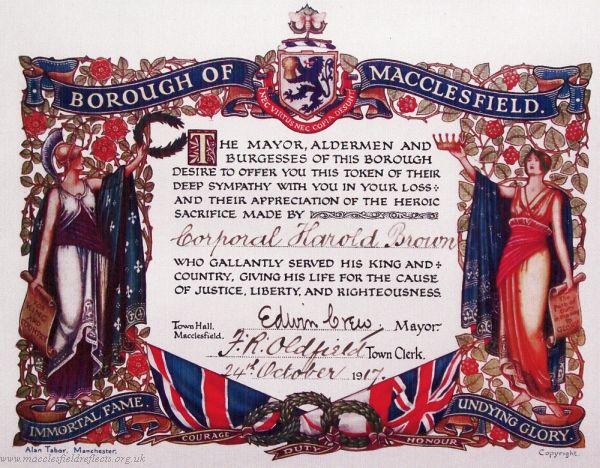 BOROUGH OF MACCLESFIELD.
NEC VIRTUS NEC COPIA DESUNT
THE MAYOR, ALDERMEN AND
BURGESSES OF THIS BOROUGH
DESIRE TO OFFER YOU THIS TOKEN OF THEIR
DEEP SYMPATHY WITH YOU IN YOUR LOSS
AND THEIR APPRECIATION OF THE HEROIC
SACRIFICE MADE BY
Corporal Harold Brown
WHO GALLANTLY SERVED HIS KING AND
COUNTRY, GIVING HIS LIFE FOR THE CAUSE
OF JUSTICE, LIBERTY, AND RIGHTEOUSNESS.
FOR KING AND COUNTRY
Town Hall, Edwin Crew Mayor.
Macclesfield. F. R. Oldfield Town Clerk.
24th October 1917.
IMMORTAL FAME.
UNDYING GLORY.
COURAGE DUTY HONOUR
Alan Tabor, Manchester.
Copyright.
www.macclesfieldreflects.org.uk